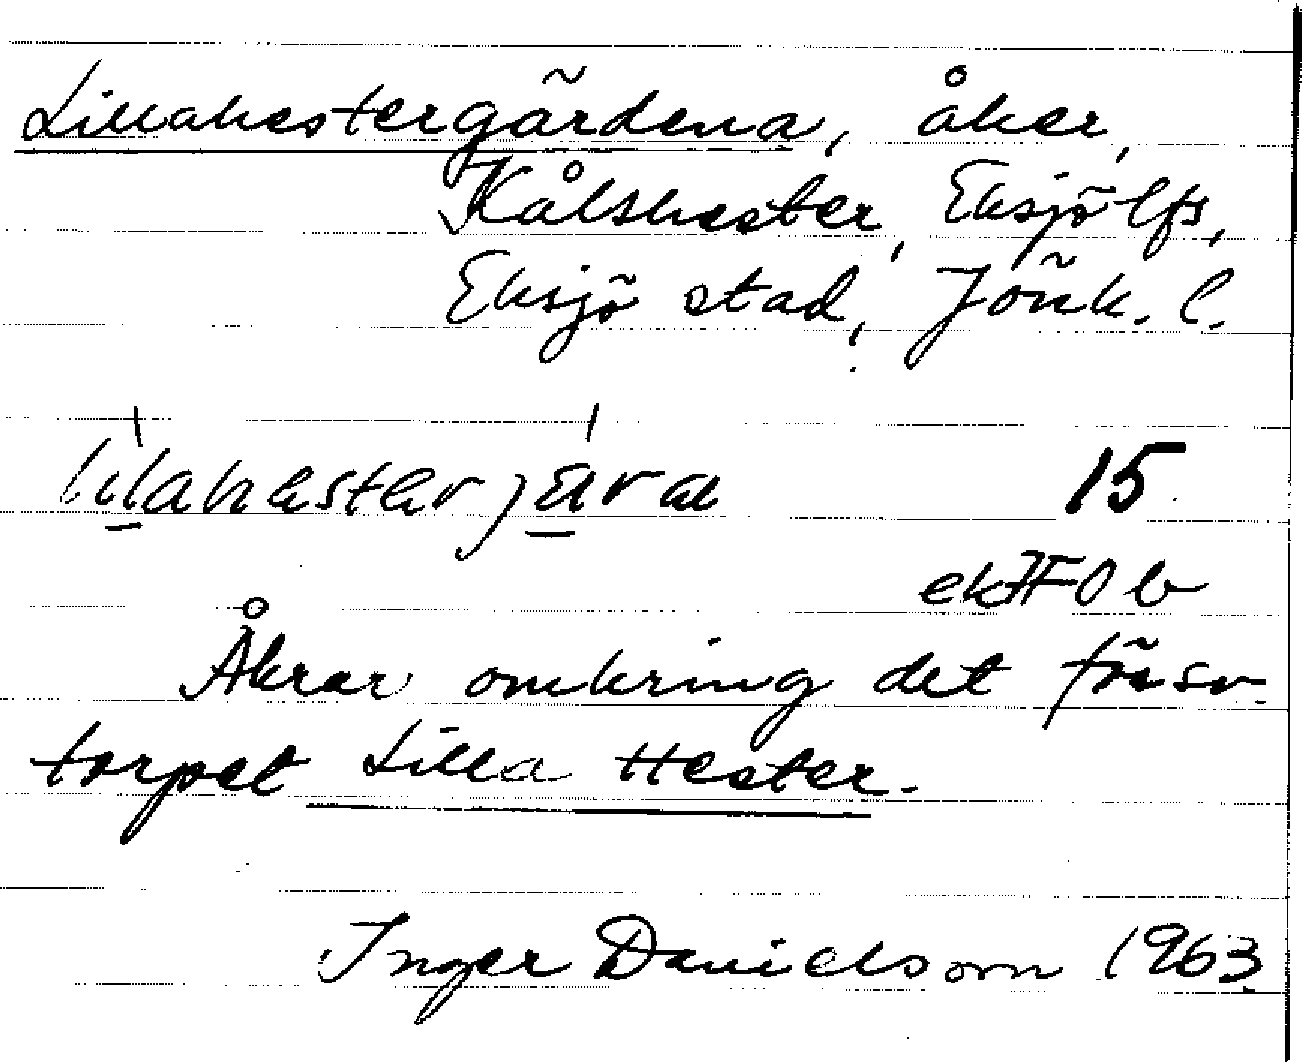 Lillahestergärdena, åker,
Kålshester, Eksjö lfs,
Eksjö stad, Jönk. l.
15
Åkrar omkring det försv.
torpet Lilla Hester.
Inger Danielsson 1963